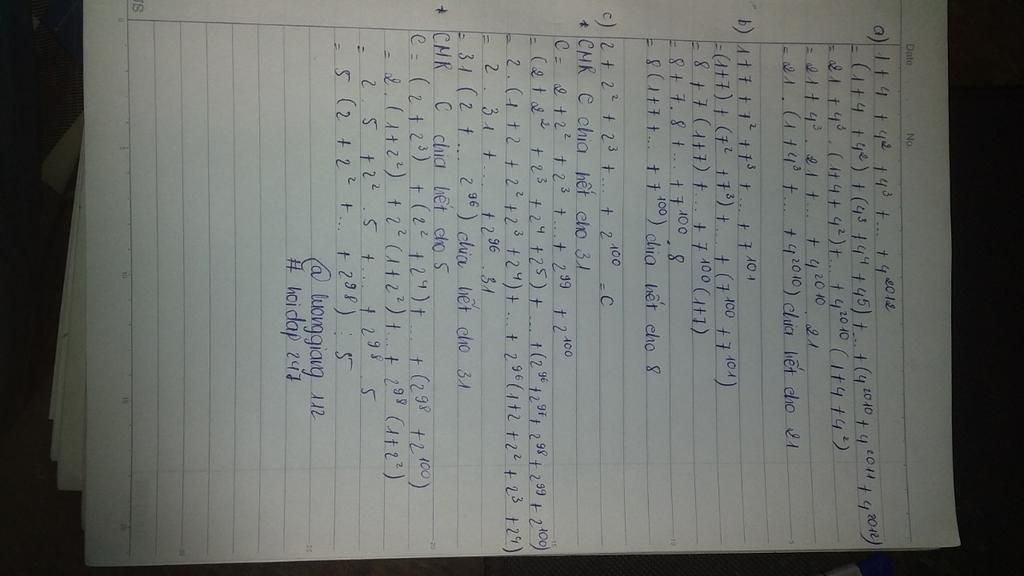 Date No.
a) 1 + 4 + 4² + 4³ + ... + 4²⁰¹²
= (1 + 4 + 4²) + (4³ + 4⁴ + 4⁵) + ... + (4²⁰¹⁰ + 4²⁰¹¹ + 4²⁰¹²)
= 21 + 4³ . (1 + 4 + 4²) + ... + 4²⁰¹⁰ (1 + 4 + 4²)
= 21 + 4³ . 21 + ... + 4²⁰¹⁰ . 21
= 21 . (1 + 4³ + ... + 4²⁰¹⁰) chia hết cho 21
b) 1 + 7 + 7² + 7³ + ... + 7¹⁰¹
= (1+7) + (7² + 7³) + ... + (7¹⁰⁰ + 7¹⁰¹)
= 8 + 7 (1+7) + ... + 7¹⁰⁰ (1+7)
= 8 + 7 . 8 + ... + 7¹⁰⁰ . 8
= 8 (1+7 + ... + 7¹⁰⁰) chia hết cho 8
c) 2 + 2² + 2³ + ... + 2¹⁰⁰ = C
* CMR C chia hết cho 31
C = 2 + 2² + 2³ + ... + 2⁹⁹ + 2¹⁰⁰
= (2 + 2² + 2³ + 2⁴ + 2⁵) + ... + (2⁹⁶ + 2⁹⁷ + 2⁹⁸ + 2⁹⁹ + 2¹⁰⁰)
= 2 . (1 + 2 + 2² + 2³ + 2⁴) + ... + 2⁹⁶ (1 + 2 + 2² + 2³ + 2⁴)
= 2 . 31 + ... + 2⁹⁶ . 31
= 31 (2 + ... 2⁹⁶) chia hết cho 31
* CMR C chia hết cho 5
C = (2 + 2³) + (2² + 2⁴) + ... + (2⁹⁸ + 2¹⁰⁰)
= 2 . (1 + 2²) + 2² (1 + 2²) + ... + 2⁹⁸ (1 + 2²)
= 2 . 5 + 2² 5 + ... + 2⁹⁸ 5
= 5 (2 + 2² + ... + 2⁹⁸) : 5
@ huonggiang 112
# hoidap 247